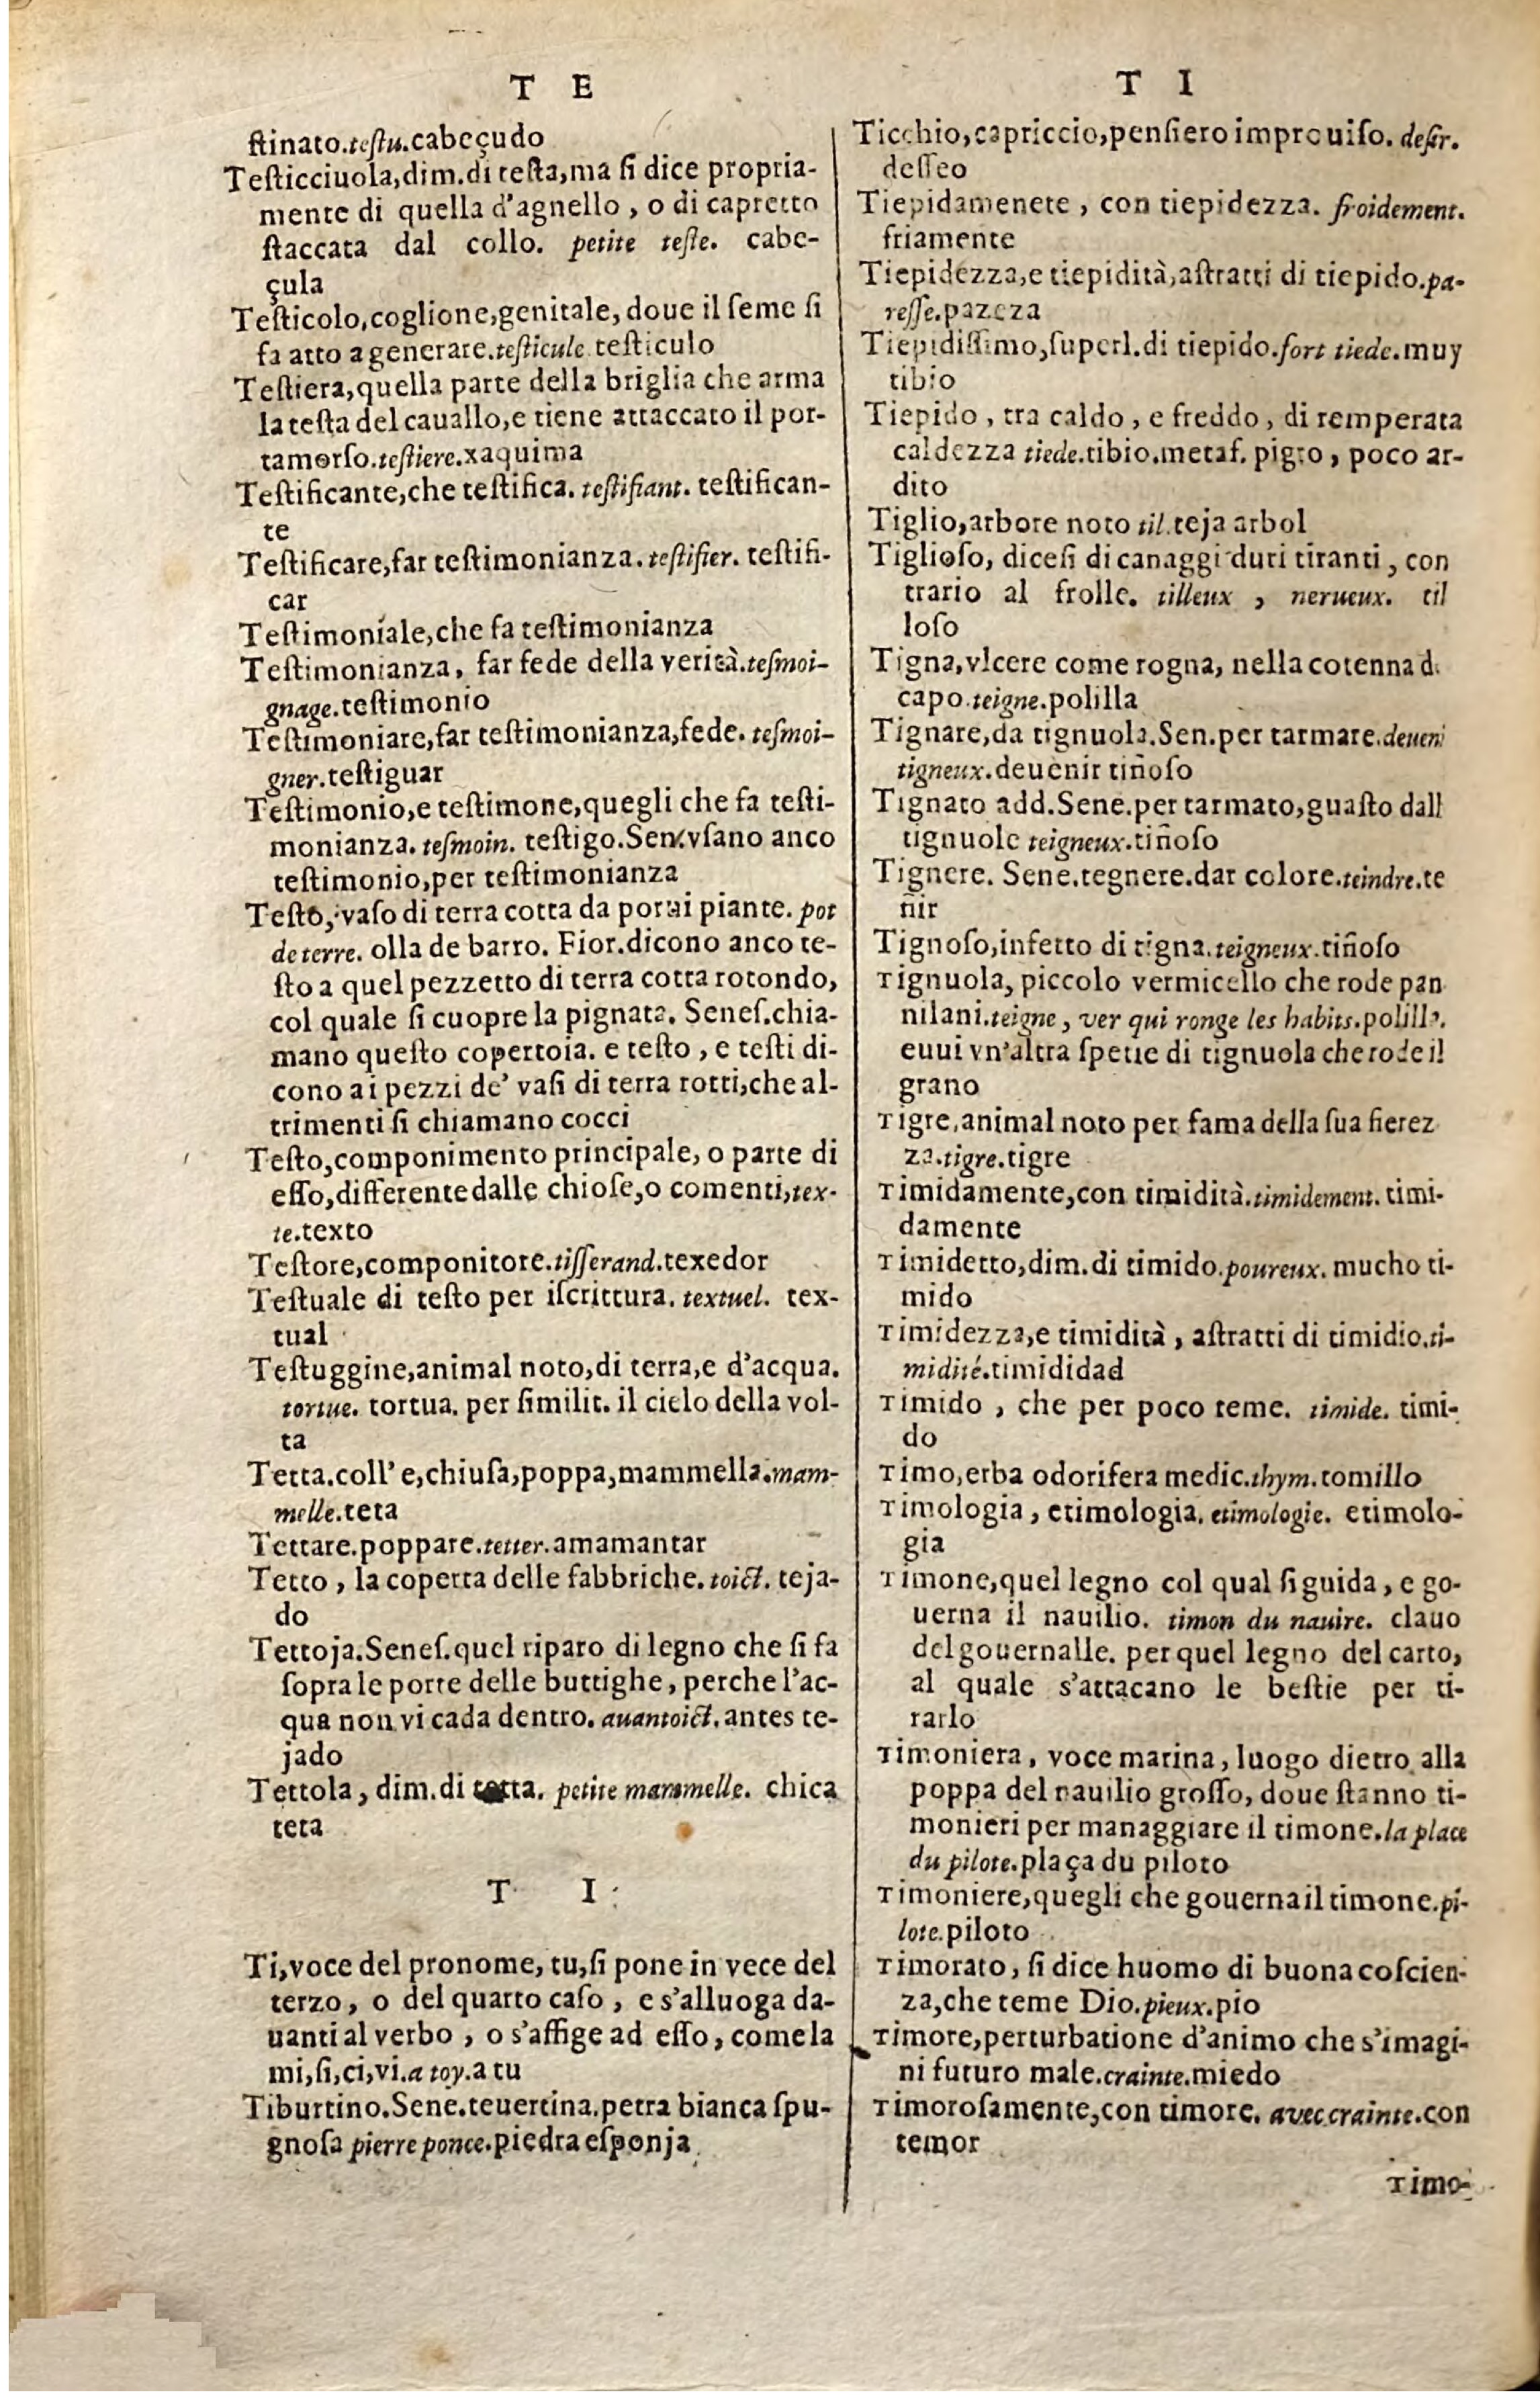 T E
ſtinato.teſtu.cabeçudo
Teſticciuola,dim.di teſta,ma ſi dice propria-
mente di quella d'agnello , o di capretto
ſtaccata dal collo. petite teſte. cabe-
çula
Teſticolo,coglione,genitale, doue il ſeme ſi
fa atto a generare.teſticule.teſticulo
Teſtiera,quella parte della briglia che arma
la teſta del cauallo,e tiene attaccato il por-
tamorſo.teſtiere.xaquima
Teſtificante,che teſtifica. teſtifiant. teſtifican-
te
Teſtificare,far teſtimonianza.teſtifier. teſtifi-
car
Teſtimoniale,che fa teſtimonianza
Teſtimonianza, far fede della verità.teſmoi-
gnage.teſtimonio
Teſtimoniare,far teſtimonianza,fede. teſmoi-
gner.teſtiguar
Teſtimonio,e teſtimone,quegli che fa teſti-
monianza. teſmoin. teſtigo.Sen.vſano anco
teſtimonio,per teſtimonianza
Teſto, vaſo di terra cotta da porui piante. pot
de terre. olla de barro. Fior.dicono anco te-
ſto a quel pezzetto di terra cotta rotondo,
col quale ſi cuopre la pignata. Seneſ.chia-
mano queſto copertoia. e teſto , e teſti di-
cono ai pezzi de' vaſi di terra rotti,che al-
trimenti ſi chiamano cocci
Teſto,componimento principale, o parte di
eſſo,differente dalle chioſe,o comenti,tex-
te.texto
Teſtore,componitore.tiſſerand.texedor
Teſtuale di teſto per iſcrittura. textuel. tex-
tual
Teſtuggine,animal noto,di terra,e d'acqua.
tortue. tortua. per ſimilit. il cielo della vol-
ta
Tetta.coll' e,chiuſa,poppa,mammella.mam-
melle.teta
Tettare.poppare.tetter.amamantar
Tetto , la coperta delle fabbriche. toict. teja-
do
Tettoja.Seneſ.quel riparo di legno che ſi fa
ſopra le porte delle buttighe, perche l'ac-
qua non vi cada dentro. auantoict. antes te-
jado
Tettola, dim.di tetta. petite mammelle. chica
teta
T I
Ti,voce del pronome, tu,ſi pone in vece del
terzo, o del quarto caſo , e s'alluoga da-
uanti al verbo , o s'affige ad eſſo, come la
mi,ſi,ci,vi.a toy.a tu
Tiburtino.Sene.teuertina.petra bianca ſpu-
gnoſa pierre ponce.piedra eſponja
T I
Ticchio,capriccio,penſiero improuiſo. deſir.
deſſeo
Tiepidamenete , con tiepidezza. froidement.
friamente
Tiepidezza,e tiepidità,aſtratti di tiepido.pa-
reſſe.pazeza
Tiepidiſſimo,ſuperl.di tiepido.fort tiede.muy
tibio
Tiepido , tra caldo , e freddo , di temperata
caldezza tiede.tibio.metaf. pigro , poco ar-
dito
Tiglio,arbore noto til.teja arbol
Tiglioſo, diceſi di canaggi duri tiranti , con
trario al frolle. tilleux , nerueux. til
loſo
Tigna,vlcere come rogna, nella cotenna d
capo.teigne.polilla
Tignare,da tignuola.Sen.per tarmare.deueni
tigneux.deuenir tiñoſo
Tignato add.Sene.per tarmato,guaſto dall
tignuole teigneux.tiñoſo
Tignere. Sene.tegnere.dar colore.teindre.te
ñir
Tignoſo,infetto di tigna.teigneux.tiñoſo
Tignuola, piccolo vermicello che rode pan
nilani.teigne, ver qui ronge les habits.polilla.
euui vn'altra ſpetie di tignuola che rode il
grano
Tigre,animal noto per fama della ſua fierez
za.tigre.tigre
Timidamente,con timidità.timidement. timi-
damente
Timidetto,dim.di timido.poureux. mucho ti-
mido
Timidezza,e timidità , aſtratti di timidio.ti-
midité.timididad
Timido , che per poco teme. timide. timi-
do
Timo,erba odorifera medic.thym.tomillo
Timologia , etimologia. etimologie. etimolo-
gia
Timone,quel legno col qual ſi guida, e go-
uerna il nauilio. timon du nauire. clauo
del gouernalle. per quel legno del carto,
al quale s'attacano le beſtie per ti-
rarlo
Timoniera, voce marina, luogo dietro alla
poppa del nauilio groſſo, doue ſtanno ti-
monieri per managgiare il timone.la place
du pilote.plaça du piloto
Timoniere,quegli che gouerna il timone.pi-
lote.piloto
Timorato, ſi dice huomo di buona coſcien-
za,che teme Dio.pieux.pio
Timore,perturbatione d'animo che s'imagi-
ni futuro male.crainte.miedo
Timoroſamente,con timore. avec crainte.con
temor
Timo-